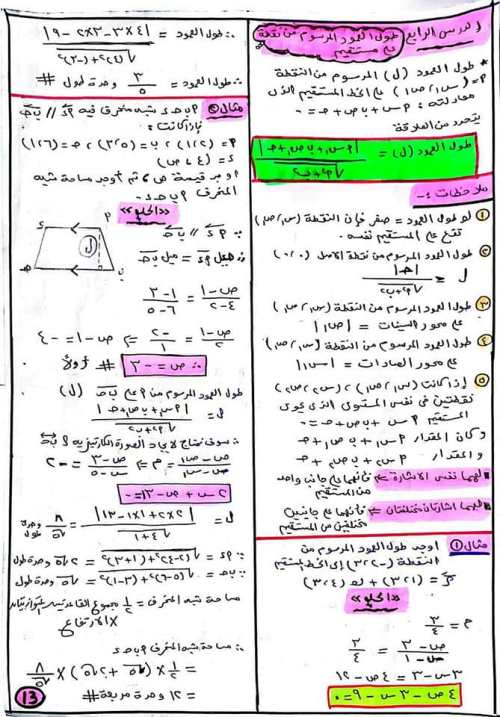 الدرس الرابع
طول العمود المرسوم من نقطة
على مستقيم
* طول العمود (ل) المرسوم من النقطة
م = (س١، ص١) على الخط المستقيم الذى
معادلته : ٢س + ب ص + حـ = ٠
يتحدد من العلاقة
طول العمود (ل) = |٢س١ + ب ص١ + حـ| / √(٢٢ + ب٢)
ملاحظات :-
① لو طول العمود = صفر فإن النقطة (س١، ص١)
تقع على المستقيم نفسه.
② طول العمود المرسوم من نقطة الأصل (٠،٠)
ل = |حـ| / √(٢٢ + ب٢)
③ طول العمود المرسوم من النقطة (س١، ص١)
على محور السينات = |ص١|
④ طول العمود المرسوم من النقطة (س١، ص١)
على محور الصادات = |س١|
⑤ إذا كانت (س١، ص١) ، (س٢، ص٢)
نقطتين فى نفس المستوى الذى يحوى
المستقيم ٢س + ب ص + حـ = ٠
وكان المقدار ٢س١ + ب ص١ + حـ
والمقدار ٢س٢ + ب ص٢ + حـ
لهما نفس الاشارة ⇐ فإنهما على جانب واحد
من المستقيم
لهما اشارتان مختلفتان ⇐ فإنهما على جانبين
مختلفين من المستقيم
مثال ① أوجد طول العمود المرسوم من
النقطة (-٢، ٣) إلى الخط المستقيم
ر = (١، ٣) + ك (٤، ٣)
«الحلو»
م = ٣/٤
ص-٣ / س-١ = ٣/٤
٣س-٣ = ٤ص-١٢
٤ص - ٣س - ٩ = ٠
∴ طول العمود = |٤×٣ - ٣×٢ - ٩| / √((٤)٢ + (-٣)٢)
∴ طول العمود = ٣/٥ وحدة طول #
مثال ② ٢ب حـ ء شبه منحرف فيه ٢ء // ب حـ
إذا كانت :
٢ = (١، ٢) ، ب = (٥، ٣) ، حـ = (٦، ١)
ء = (٤، ص)
أوجد قيمة ص ، ثم أوجد مساحة شبه
المنحرف ٢ب حـ ء.
«الحلو»
∵ ٢ء // ب حـ
∴ ميل ٢ء = ميل ب حـ
ص-١ / ٤-٢ = ١-٣ / ٦-٥
ص-١ / ٢ = -٢ / ١ ⇐ ص-١ = -٤
∴ ص = -٣ # أولاً
طول العمود المرسوم من ٢ على ب حـ (ل)
ل = |٢س١ + ب ص١ + حـ| / √(٢٢ + ب٢)
∴ سوف نحتاج لإيجاد الصورة الكارتيزية لـ ب حـ
ص-ص١ / س-س١ = م ⇐ ص-٣ / س-٥ = -٢
٢س + ص - ١٣ = ٠
ل = |٢×٢ + ١×١ - ١٣| / √(٤+١) = ٨/√٥ وحدة طول
∴ ٢ء = √((٤-٢)٢ + (٣+١)٢) = ٢√٥ وحدة طول
∴ ب حـ = √((٦-٥)٢ + (١-٣)٢) = √٥ وحدة طول
مساحة شبه المنحرف = ١/٢ مجموع القاعدتين المتوازيتين
× الارتفاع
∴ مساحة شبه المنحرف ٢ب حـ ء
= ١/٢ × (√٥ + ٢√٥) × ٨/√٥
= ١٢ وحدة مربعة #
13